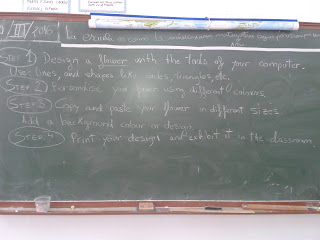 /III/2016
La
STEP 1) Design a flower with the tools of your computer.
Use: lines, and shapes like circles, triangles, etc.
STEP 2) Personalise your flower using different colours.
STEP 3 Copy and paste your flower in different sizes
Add a background colour or design.
STEP 4 Print your design and exhibit it in the classroom.